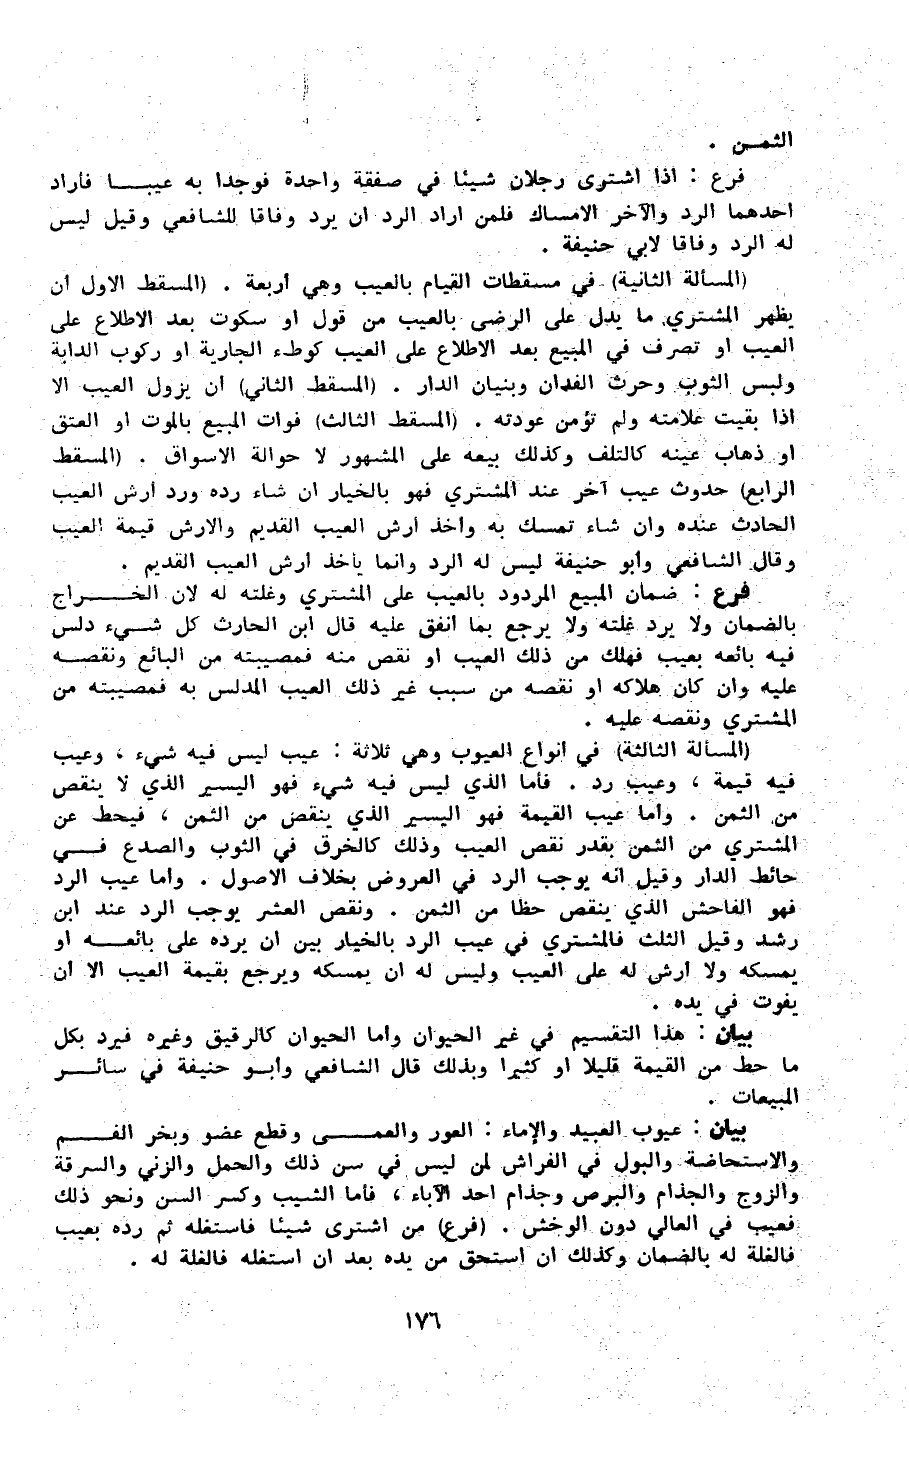 الثمـن .
فرع : اذا اشترى رجلان شيئا في صفقة واحدة فوجدا به عيبـــا فأراد
احدهما الرد والآخر الامساك فلمن اراد الرد ان يرد وفاقا للشافعي وقيل ليس
له الرد وفاقا لابي حنيفة .
(المسألة الثانية) في مسقطات القيام بالعيب وهي أربعة . (المسقط الاول أن
يظهر المشتري ما يدل على الرضى بالعيب من قول او سكوت بعد الاطلاع على
العيب او تصرف في المبيع بعد الاطلاع على العيب كوطء الجارية او ركوب الدابة
ولبس الثوب وحرث الفدان وبنيان الدار . (المسقط الثاني) أن يزول العيب الا
اذا بقيت علامته ولم تؤمن عودته . (المسقط الثالث) فوات المبيع بالموت او العتق
او ذهاب عينه كالتلف وكذلك بيعه على المشهور لا حوالة الاسواق . (المسقط
الرابع) حدوث عيب آخر عند المشتري فهو بالخيار ان شاء رده ورد أرش العيب
الحادث عنده وان شاء تمسك به وأخذ أرش العيب القديم والارش قيمة العيب
وقال الشافعي وأبو حنيفة ليس له الرد وانما يأخذ أرش العيب القديم .
فرع : ضمان المبيع المردود بالعيب على المشتري وغلته له لان الخــــراج
بالضمان ولا يرد غلته ولا يرجع بما أنفق عليه قال ابن الحارث كل شــيء دلس
فيه بائعه بعيب فهلك من ذلك العيب او نقص منه فمصيبته من البائع ونقصــه
عليه وان كان هلاكه او نقصه من سبب غير ذلك العيب المدلس به فمصيبته من
المشتري ونقصه عليه .
(المسألة الثالثة) في أنواع العيوب وهي ثلاثة : عيب ليس فيه شيء ، وعيب
فيه قيمة ، وعيب رد . فأما الذي ليس فيه شيء فهو اليسير الذي لا ينقص
من الثمن . وأما عيب القيمة فهو اليسير الذي ينقص من الثمن ، فيحط عن
المشتري من الثمن بقدر نقص العيب وذلك كالخرق في الثوب والصدع فــي
حائط الدار وقيل انه يوجب الرد في العروض بخلاف الاصول . وأما عيب الرد
فهو الفاحش الذي ينقص حظا من الثمن . ونقص العشر يوجب الرد عند ابن
رشد وقيل الثلث فالمشتري في عيب الرد بالخيار بين ان يرده على بائعــه او
يمسكه ولا أرش له على العيب وليس له ان يمسكه ويرجع بقيمة العيب الا أن
يفوت في يده .
بيان : هذا التقسيم في غير الحيوان وأما الحيوان كالرقيق وغيره فيرد بكل
ما حط من القيمة قليلا او كثيرا وبذلك قال الشافعي وأبــو حنيفة في سائـــر
المبيعات .
بيان : عيوب العبيد والإماء : العور والعمـــى وقطع عضو وبخر الفـــم
والاستحاضة والبول في الفراش لمن ليس في سن ذلك والحمل والزني والسرقة
والزوج والجذام والبرص وجذام احد الآباء ، فأما الشيب وكسر السن ونحو ذلك
فعيب في العالي دون الوخش . (فرع) من اشترى شيئا فاستغله ثم رده بعيب
فالغلة له بالضمان وكذلك ان استحق من يده بعد ان استغله فالغلة له .
١٧٦